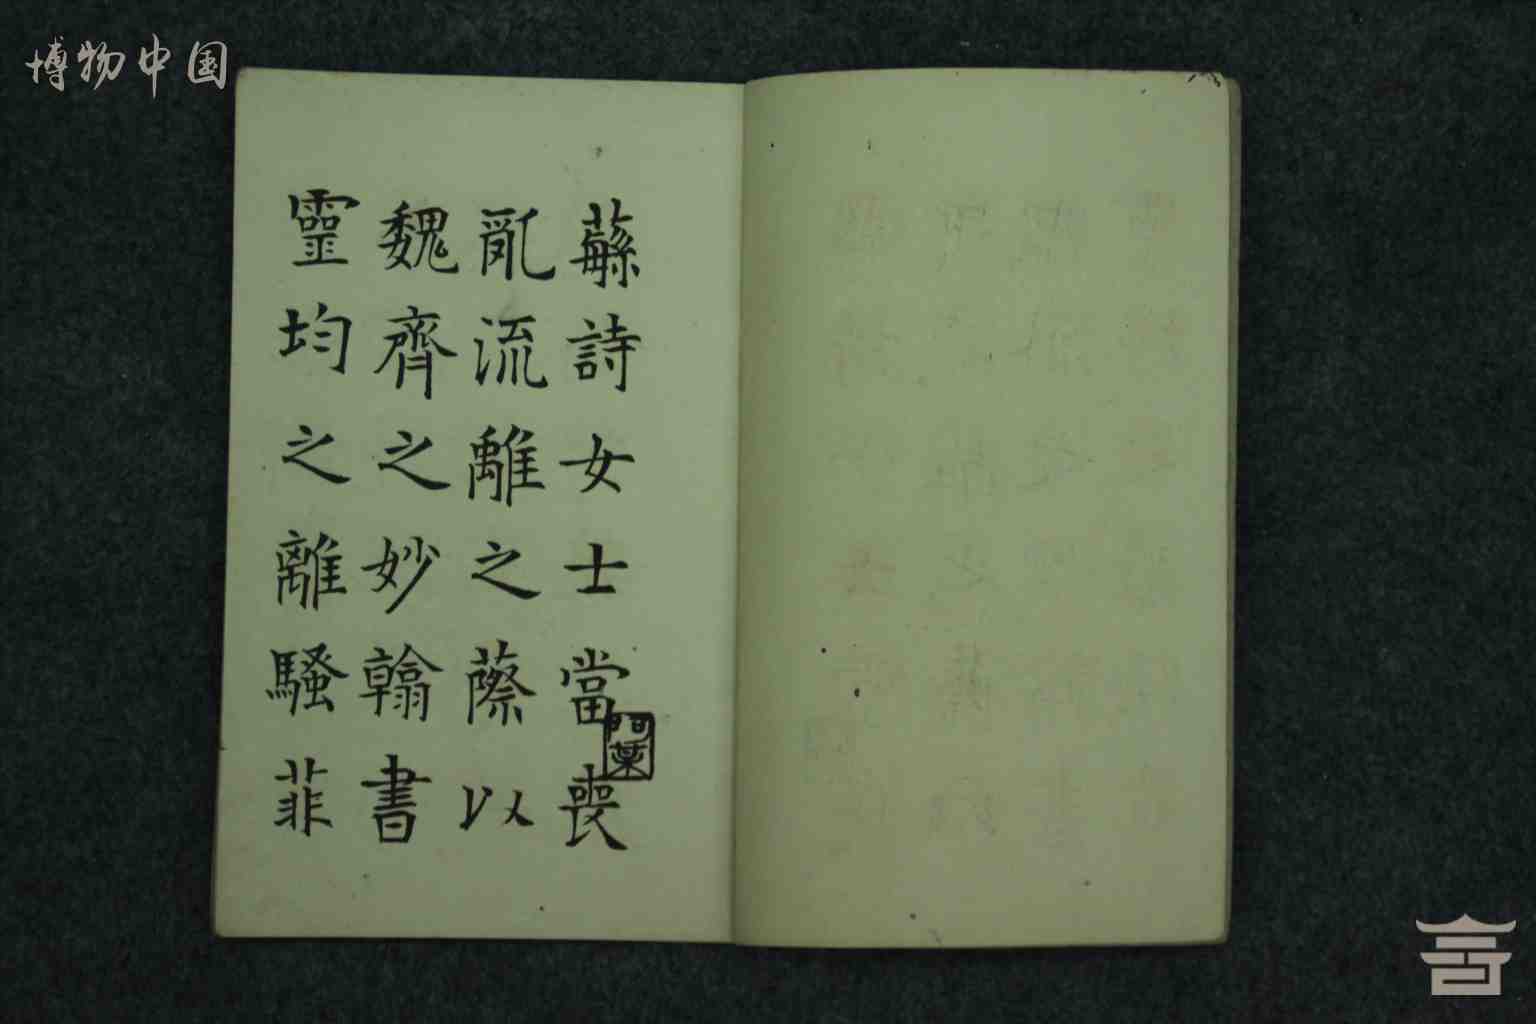 博物中国
蘇詩女士當喪
亂流離之蔡以
魏齊之妙翰書
靈均之離騷菲